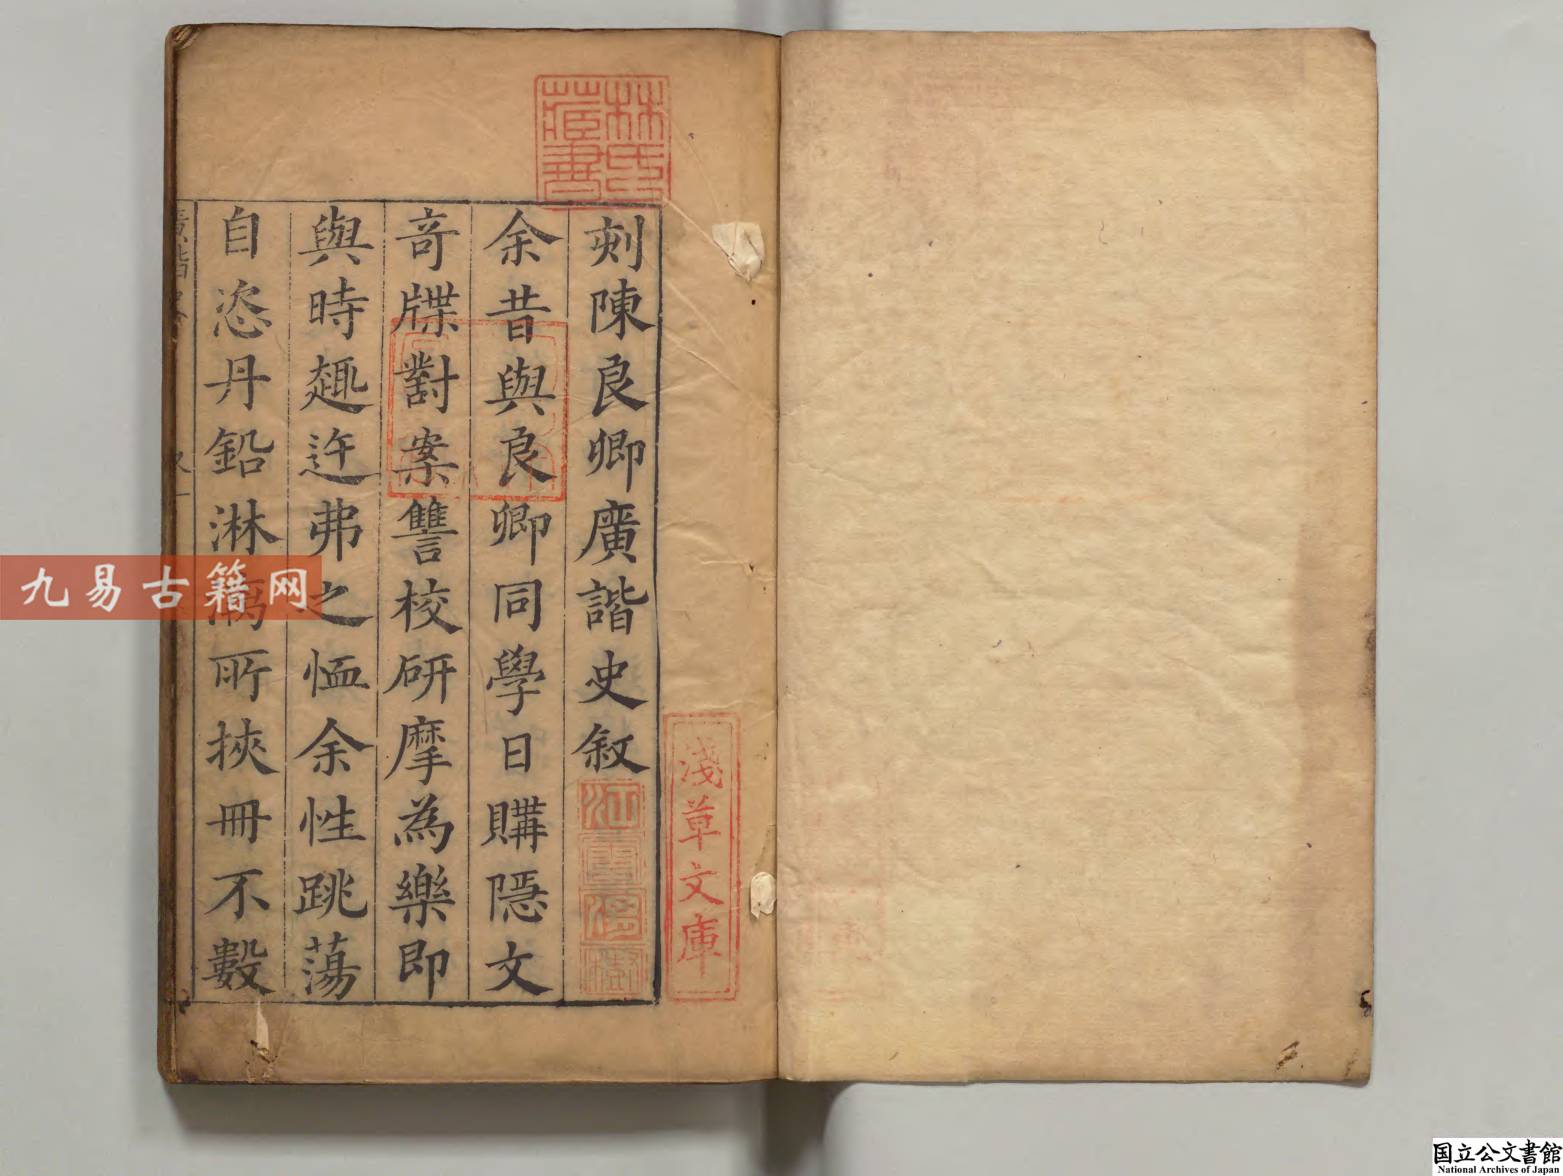 林氏藏書
淺草文庫
刻陳良卿廣諧史叙
江雲渭樹
余昔與良卿同學日購隱文
竒牒對案讐校研摩為樂即
與時趣迕弗之恤余性跳蕩
自恣丹鉛淋漓所挾冊不數
九易古籍网
国立公文書館
National Archives of Japan